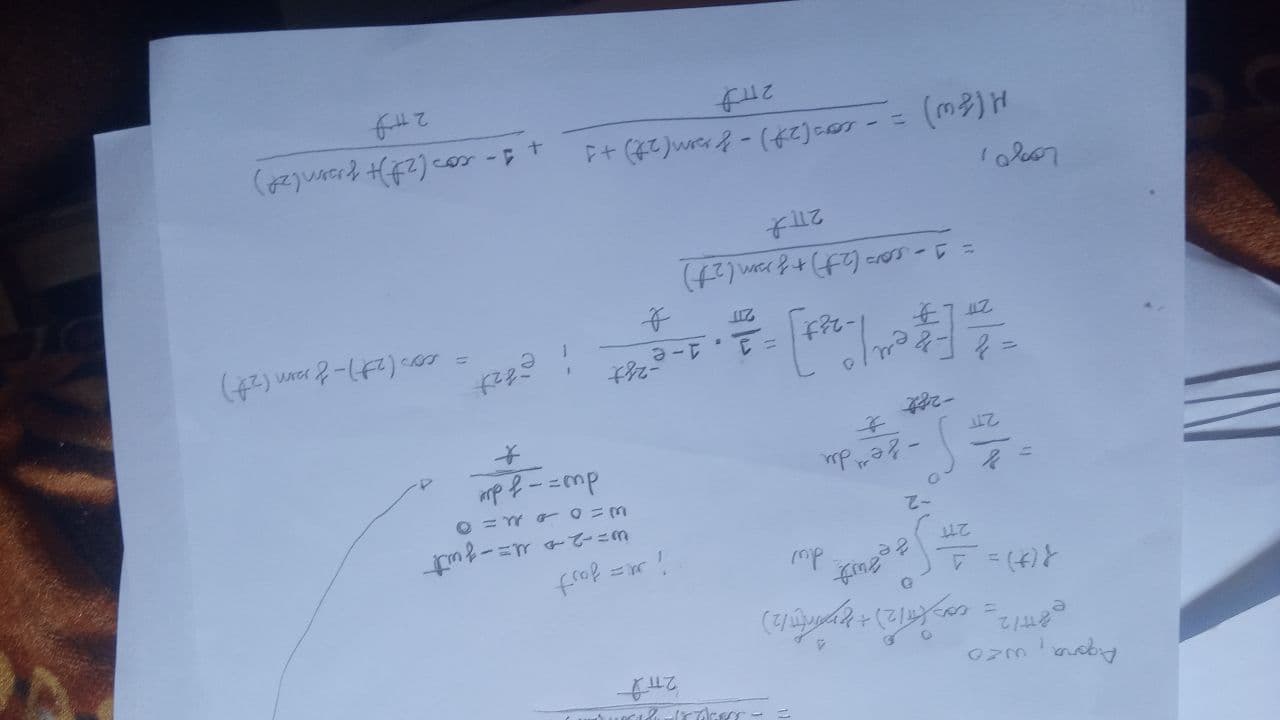 2πt
Agora, w<0
e^{jπ/2} = cos(π/2) + jsen(π/2)
f(t) = 1/2π ∫_{-2}^{0} j e^{jwt} dw ; u = jwt
w=-2 → u=-jwt
w=0 → u=0
= j/2π ∫_{-2jt}^{0} -j e^u du / t
dw = -j du / t
= j/2π [-j/t e^u |_{-2jt}^{0}] = 1/2π · (1-e^{-2jt})/t ; e^{-j2t} = cos(2t)-jsen(2t)
= (1-cos(2t)+jsen(2t)) / 2πt
Logo,
H(jw) = (-cos(2t)-jsen(2t)+1) / 2πt + (1-cos(2t)+jsen(2t)) / 2πt